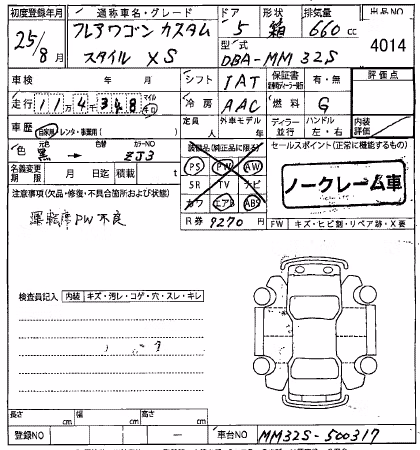 初度登録年月 通称車名・グレード ドア 形状 排気量 出品NO
25/8月 フレアワゴン カスタムスタイル XS 5 箱 660cc 4014
型式 DBA-MM32S
車検 年 月 シフト IAT 保証書 有・無 評価点
走行 114,348 マイル キロ 冷房 AAC 燃料 G
定員 人 外車モデル 年 ディーラー 並行 ハンドル 左・右 内装評価
車歴 自家用 レンタ・事業用
色 元色 黒 → カラーNO ZJ3
装備品(純正品に限る) セールスポイント(正常に機能するもの)
PS PW AW
SR TV ナビ
カワ エアB ABS
ノークレーム車
名義変更期限 月 日迄 積載 t
R券 9270円 FW キズ・ヒビ割・リペア跡・X要
注意事項(欠品・修復・不具合箇所および状態)
運転席PW不良
検査員記入 内装 キズ・汚レ・コゲ・穴・スレ・キレ
長さ cm 幅 cm 高さ cm
登録NO 車台NO MM32S-500317